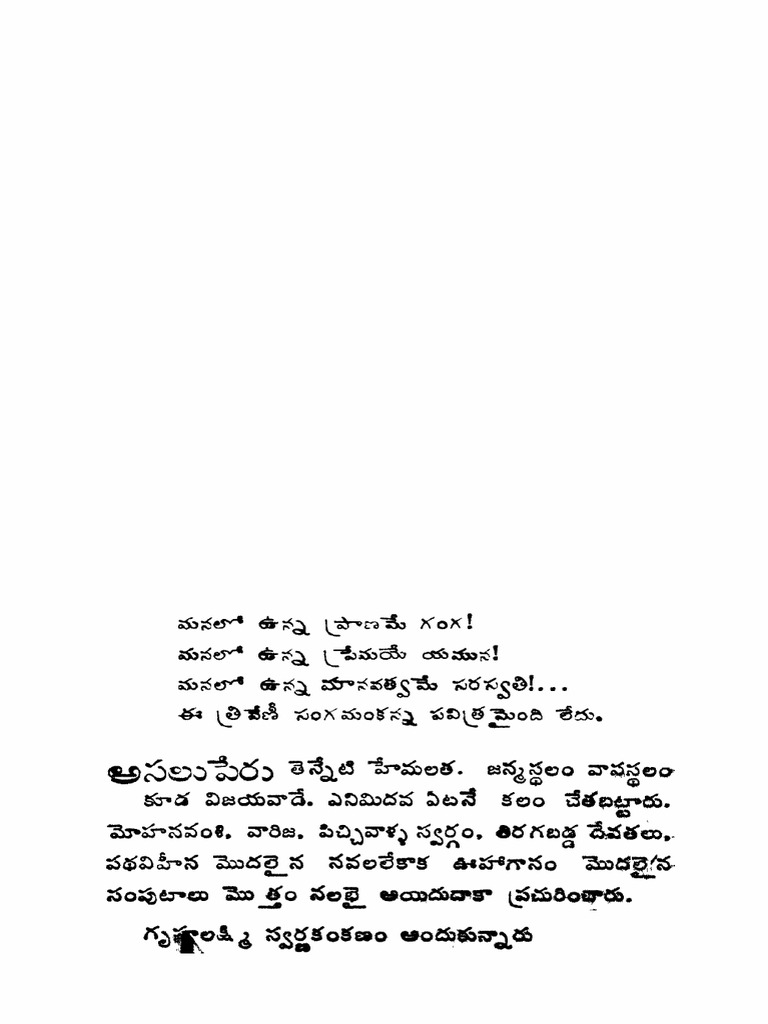 మనలో ఉన్న ప్రాణమే గంగ!
మనలో ఉన్న ప్రేమయే యమున!
మనలో ఉన్న మానవత్వమే సరస్వతి!...
ఈ త్రివేణీ సంగమంకన్న పవిత్రమైంది లేదు.
అసలుపేరు తెన్నేటి హేమలత. జన్మస్థలం వాసస్థలం
కూడ విజయవాడే. ఎనిమిదవ ఏటనే కలం చేతబట్టారు.
మోహనవంశి, వారిజ, పిచ్చివాళ్ళ స్వర్గం, తిరగబడ్డ దేవతలు,
పథవిహీన మొదలైన నవలలేకాక ఊహాగానం మొదలైన
సంపుటాలు మొత్తం నలభై అయిదుదాకా ప్రచురించారు.
గృహలక్ష్మి స్వర్ణకంకణం అందుకున్నారు